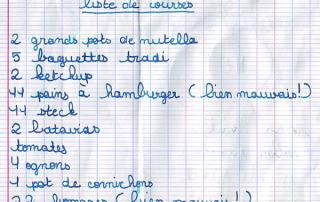 liste de courses
2 grands pots de nutella
5 baguettes tradi
2 ketchup
44 pains à hamburger (bien mauvais!)
44 steck
2 batavias
tomates
4 ognons
4 pot de cornichons
(bien mauvais!)